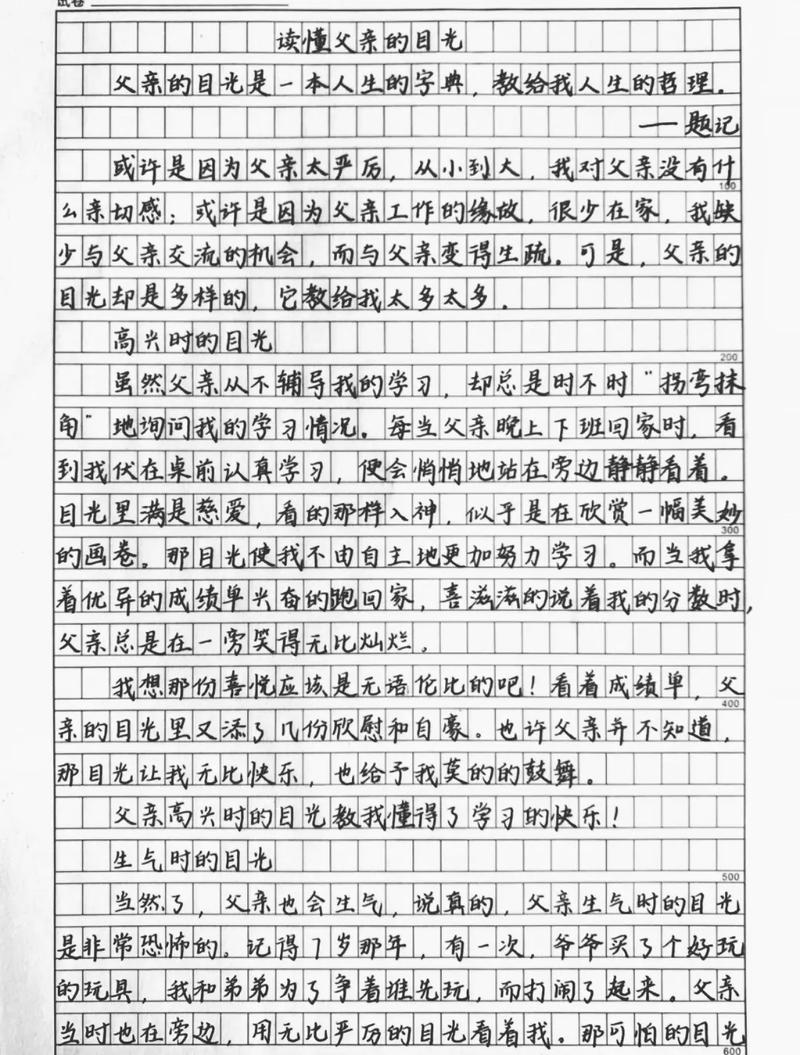 试卷
读懂父亲的目光
父亲的目光是一本人生的字典，教给我人生的哲理。
——题记
或许是因为父亲太严厉，从小到大，我对父亲没有什
100
么亲切感；或许是因为父亲工作的缘故，很少在家，我缺
少与父亲交流的机会，而与父亲变得生疏。可是，父亲的
目光却是多样的，它教给我太多太多。
高兴时的目光
200
虽然父亲从不辅导我的学习，却总是时不时“拐弯抹
角”地询问我的学习情况。每当父亲晚上下班回家时，看
到我伏在桌前认真学习，便会悄悄地站在旁边静静看着。
目光里满是慈爱，看的那样入神，似乎是在欣赏一幅美妙
300
的画卷。那目光使我不由自主地更加努力学习。而当我拿
着优异的成绩单兴奋的跑回家，喜滋滋的说着我的分数时，
父亲总是在一旁笑得无比灿烂。
我想那份喜悦应该是无语伦比的吧！看着成绩单，父
400
亲的目光里又添了几份欣慰和自豪。也许父亲并不知道，
那目光让我无比快乐，也给予我莫的的鼓舞。
父亲高兴时的目光教我懂得了学习的快乐！
生气时的目光
500
当然了，父亲也会生气，说真的，父亲生气时的目光
是非常恐怖的。记得7岁那年，有一次，爷爷买了个好玩
的玩具，我和弟弟为了争着谁先玩，而打闹了起来。父亲
当时也在旁边，用无比严厉的目光看着我。那可怕的目光
600